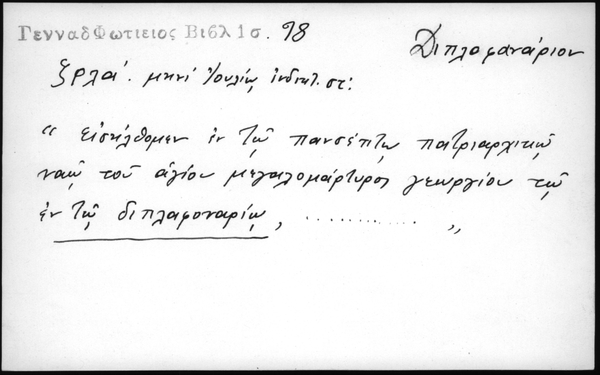 ΓενναδΦωτιειος Βιβλ 1σ. 98 Διπλοφανάριον
͵ζρλα΄. μηνί Ἰουλίῳ ἰνδικτ. στ΄:
“ εἰσήλθομεν ἐν τῷ πανσέπτῳ πατριαρχικῷ
ναῷ τοῦ ἁγίου μεγαλομάρτυρος γεωργίου τῷ
ἐν τῷ διπλοφαναρίῳ, .............. „